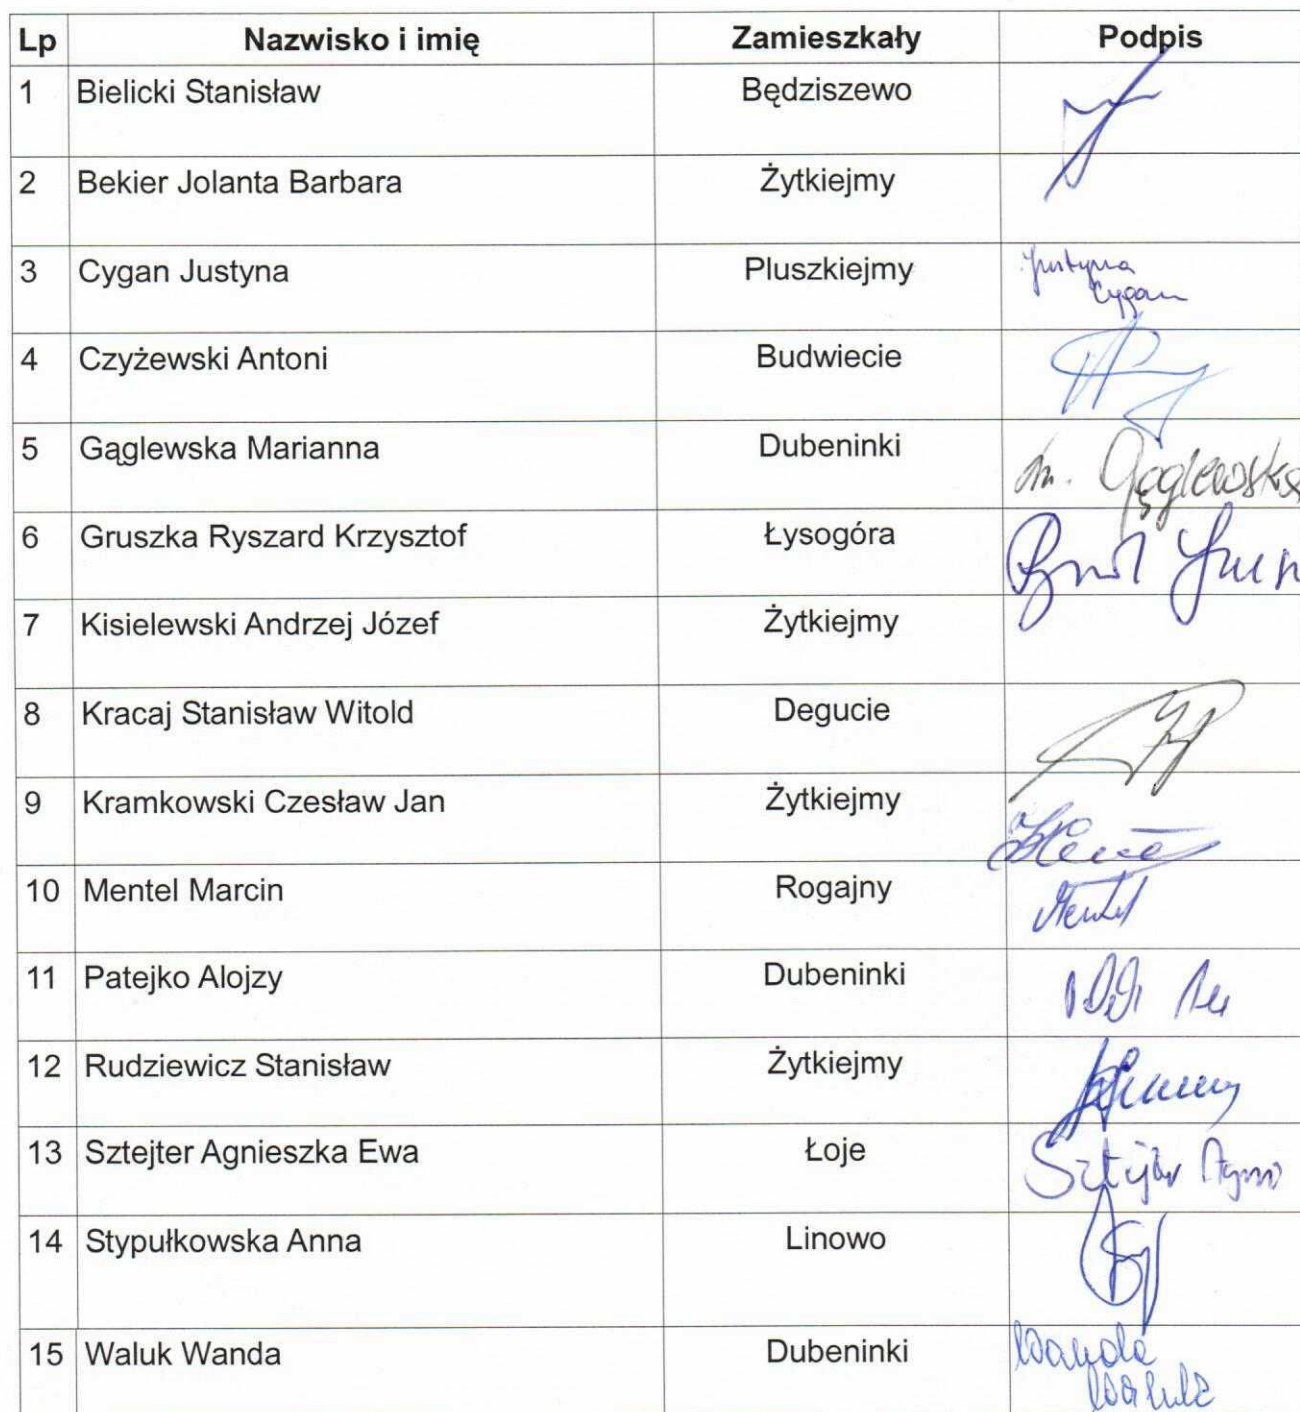 Lp Nazwisko i imię Zamieszkały Podpis
1 Bielicki Stanisław Będziszewo
2 Bekier Jolanta Barbara Żytkiejmy
3 Cygan Justyna Pluszkiejmy Justyna
Cygan
4 Czyżewski Antoni Budwiecie
5 Gąglewska Marianna Dubeninki M. Gąglewska
6 Gruszka Ryszard Krzysztof Łysogóra
7 Kisielewski Andrzej Józef Żytkiejmy
8 Kracaj Stanisław Witold Degucie
9 Kramkowski Czesław Jan Żytkiejmy
10 Mentel Marcin Rogajny Mentel
11 Patejko Alojzy Dubeninki
12 Rudziewicz Stanisław Żytkiejmy
13 Sztejter Agnieszka Ewa Łoje Sztejter
14 Stypułkowska Anna Linowo
15 Waluk Wanda Dubeninki Wanda
Waluk